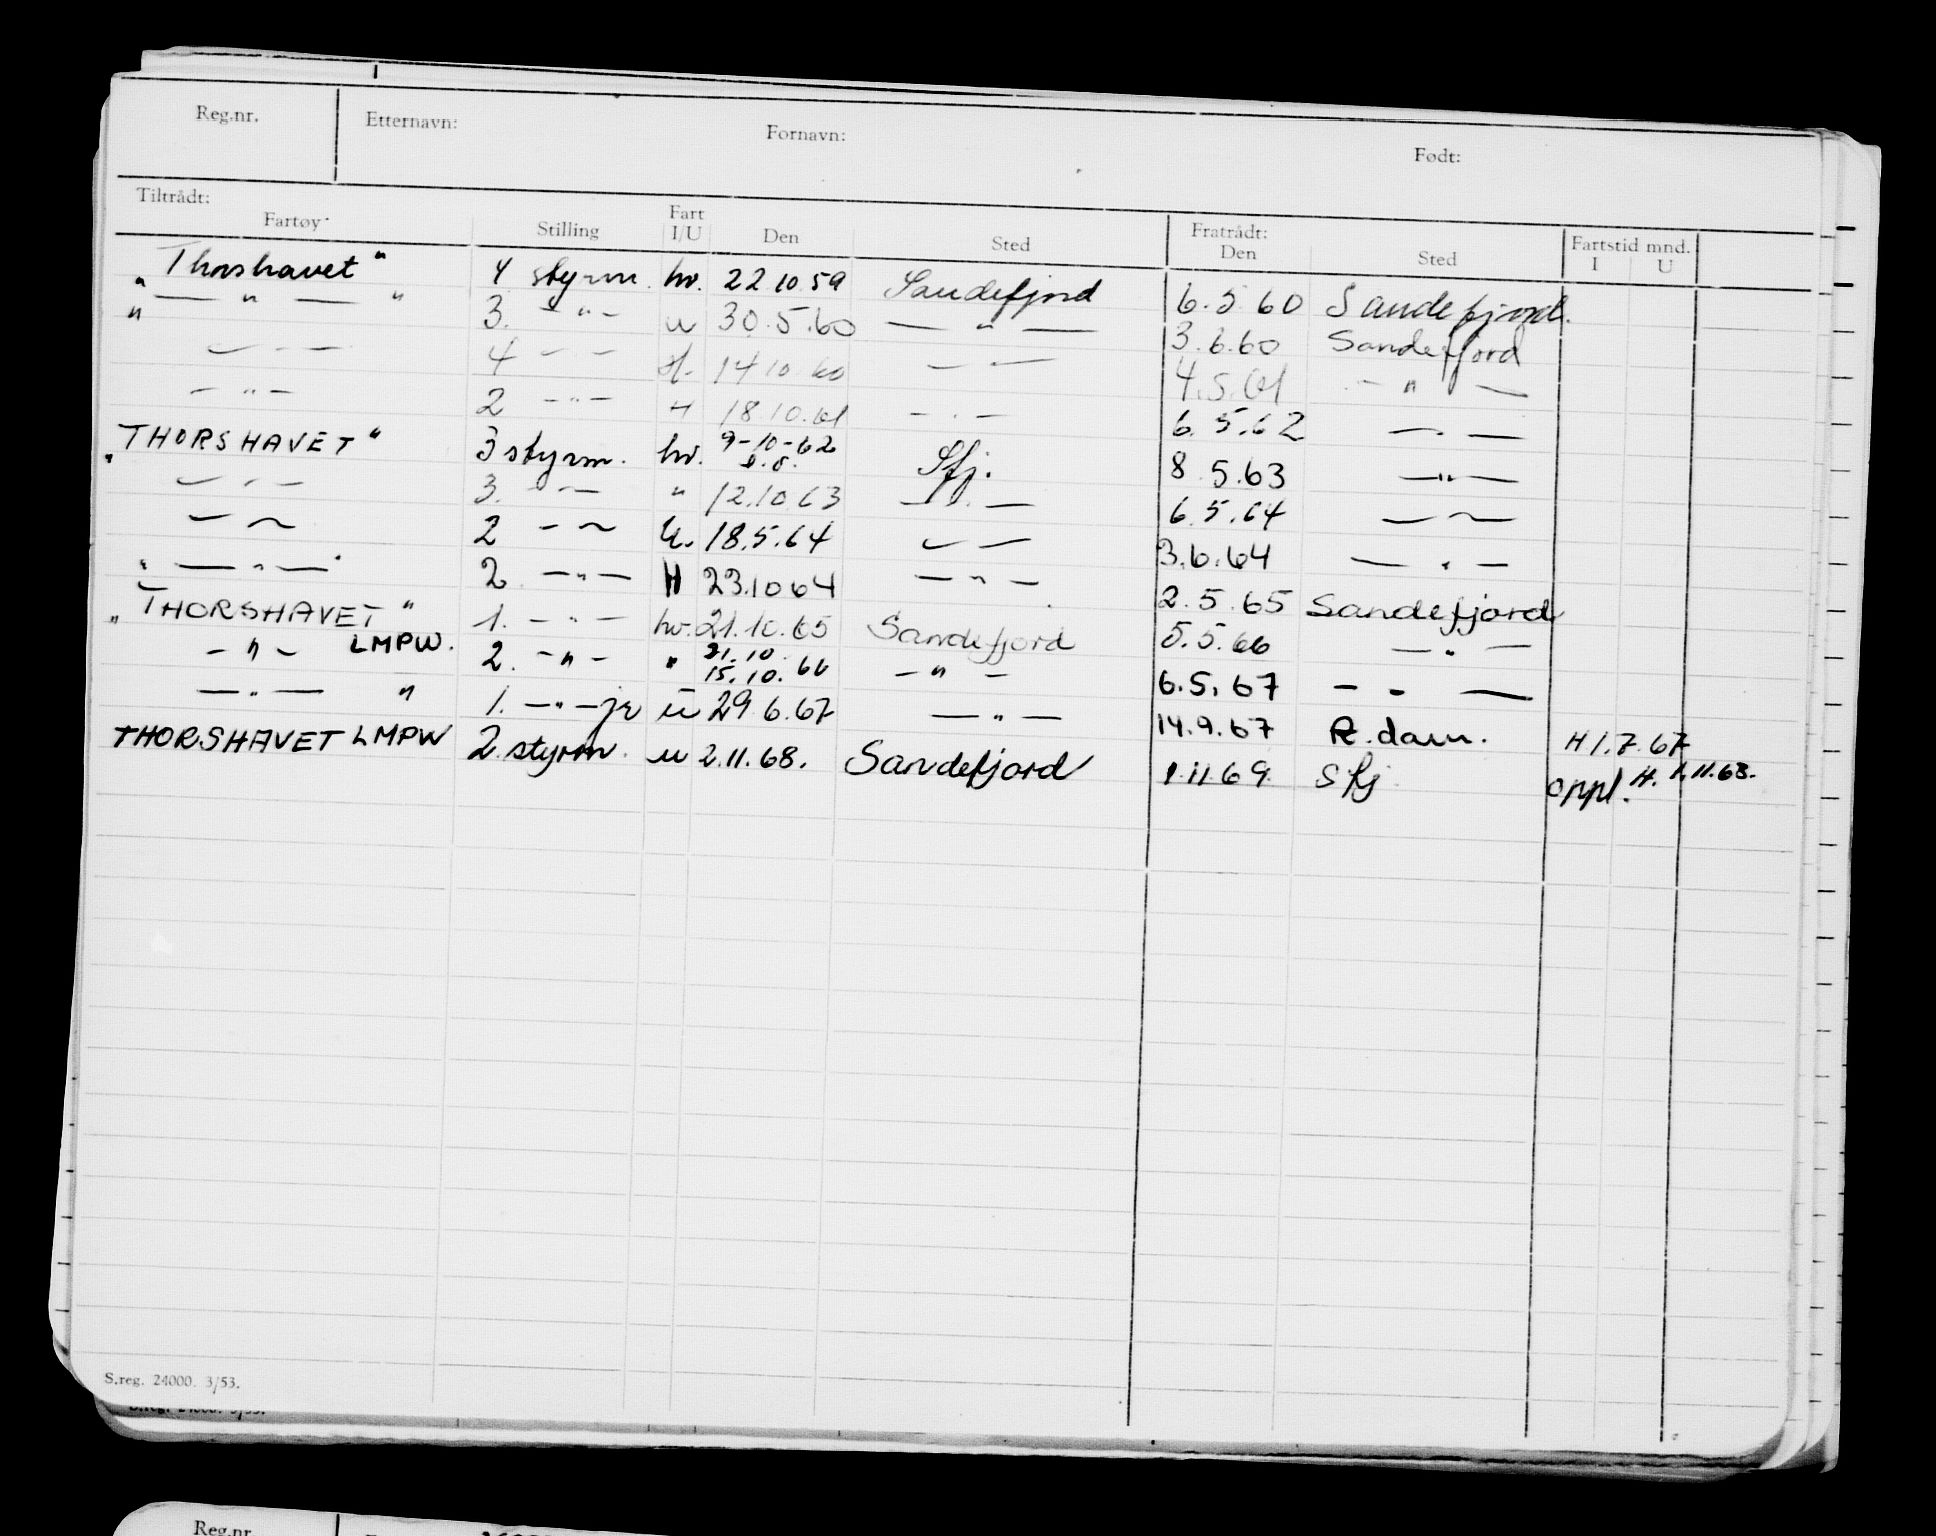 Reg.nr. Etternavn: Fornavn: Født:
Tiltrådt: Fartøy Stilling Fart I/U Den Sted Fratrådt: Den Sted Fartstid mnd. I U
„Thorshavet" 4 styrm. hv. 22 10 59 Sandefjord 6.5 60 Sandefjord.
" — " — " 3. - " - u 30.5.60 — " — 3.6.60 Sandefjord
— - — 4 — — H. 14 10 60 — — 4.5.61 — " —
- " - 2 - " - H 18.10.61 - . - 6.5.62 — . —
„THORSHAVET" 3 styrm. hv. 9-10-62 Sfj. 8.5.63 — " —
— " — 3. - " - " 12.10.63 — " — 6.5.64 — ~
— ~ 2 - ~ U. 18.5.64 — — 3.6.64 — " —
" — " — " 2. — " — H 23.10 64 — " — 2.5.65 Sandefjord
„THORSHAVET" 1. - " - hv. 21.10.65 Sandefjord 5.5.66 — " —
- " - LMPW. 2. - " - " 21.10. 15.10.66 - " - 6.5.67 - - —
— " — " 1. — " — jr u 29 6.67 — " — 14.9.67 R.dam. H 1.7.67
THORSHAVET LMPW 2. styrm. u 2.11.68. Sandefjord 1.11 69. Sfj oppl. H. 1.11.68.
S.reg. 24000. 3/53.
Reg.nr.